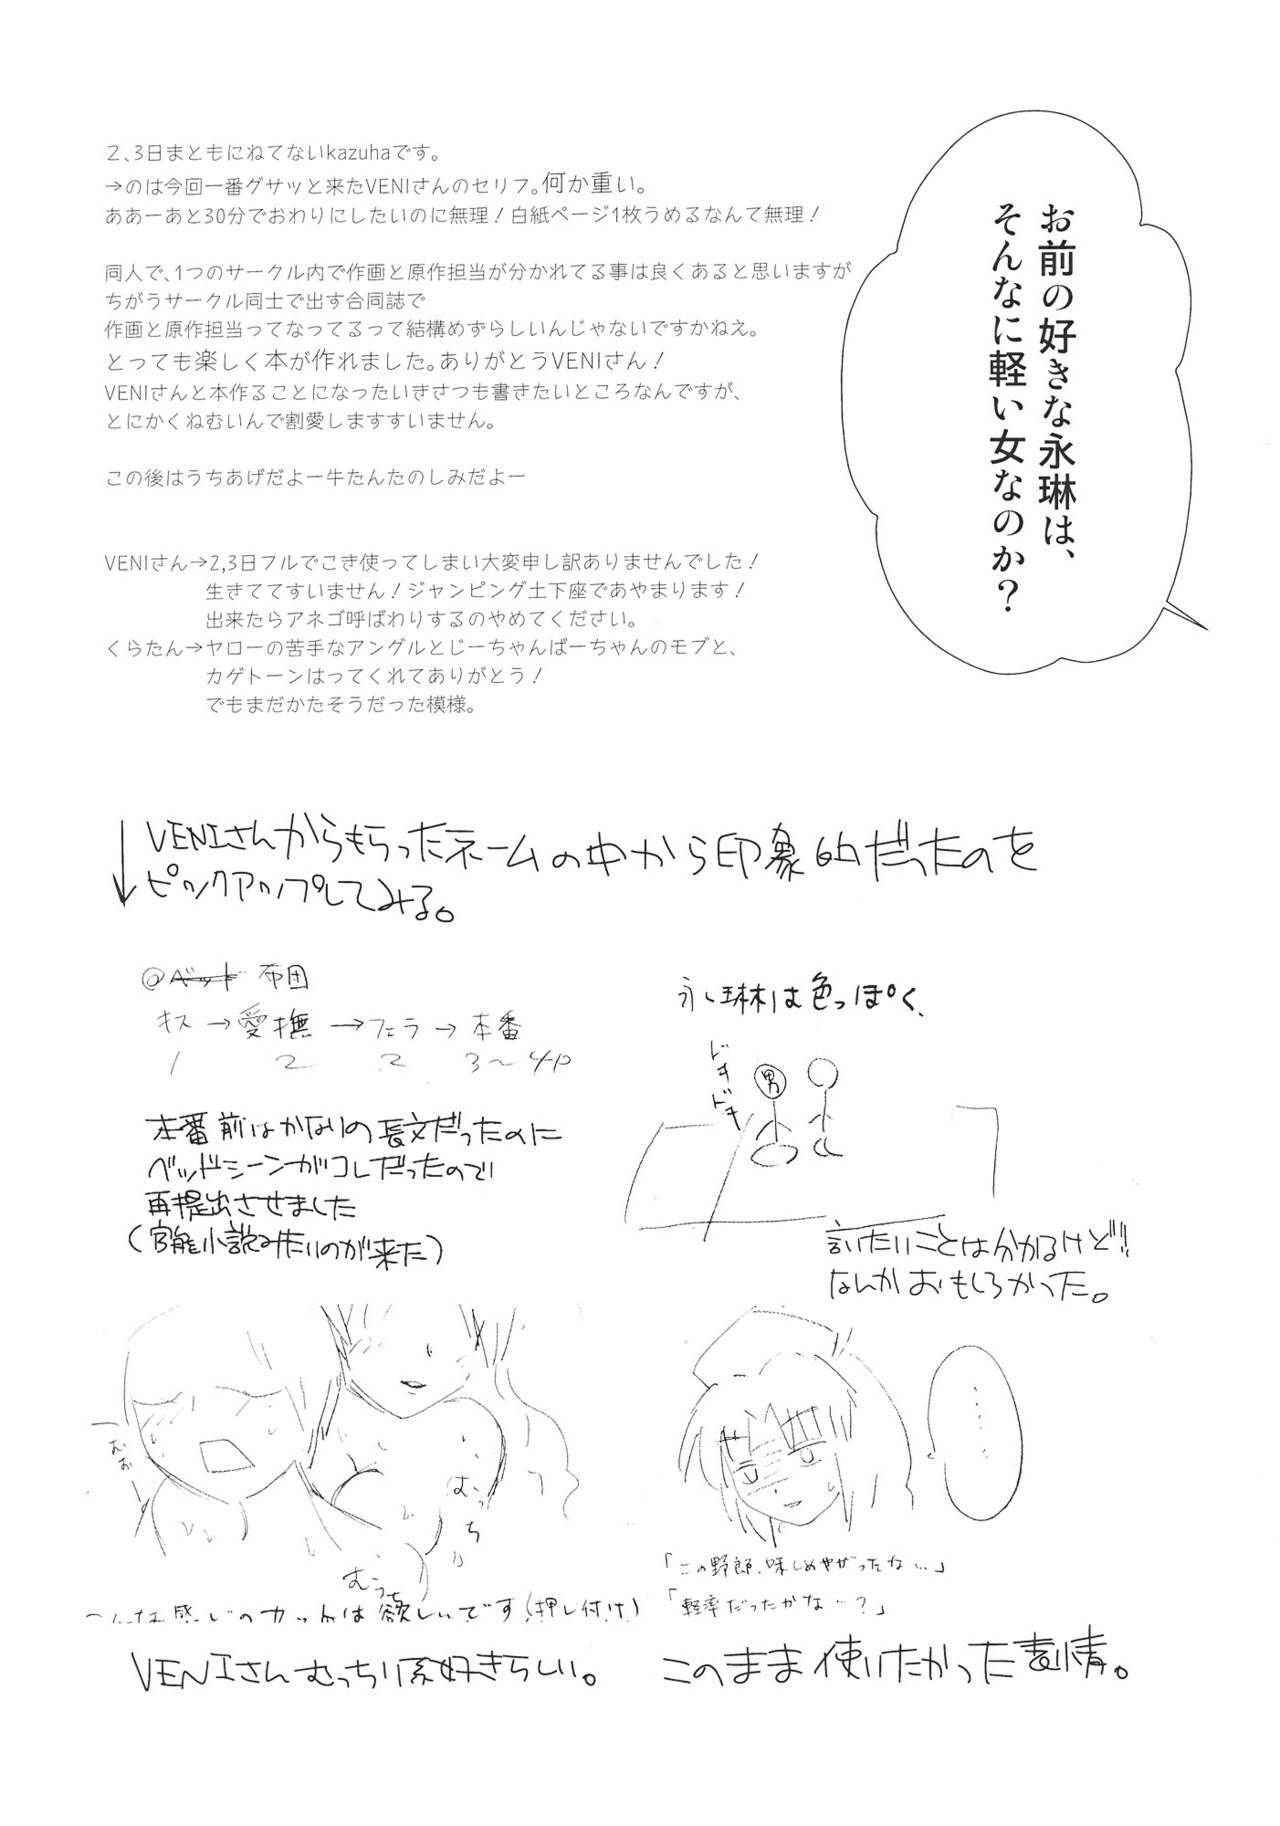 お前の好きな永琳は、
そんなに軽い女なのか？
2、3日まともにねてないkazuhaです。
→のは今回一番グサッと来たVENIさんのセリフ。何か重い。
ああーあと30分でおわりにしたいのに無理！白紙ページ1枚うめるなんて無理！
同人で、1つのサークル内で作画と原作担当が分かれてる事は良くあると思いますが
ちがうサークル同士で出す合同誌で
作画と原作担当ってなってるって結構めずらしいんじゃないですかねえ。
とっても楽しく本が作れました。ありがとうVENIさん！
VENIさんと本作ることになったいきさつも書きたいところなんですが、
とにかくねむいんで割愛しますすいません。
この後はうちあげだよー牛たんたのしみだよー
VENIさん→2,3日フルでこき使ってしまい大変申し訳ありませんでした！
生きててすいません！ジャンピング土下座であやまります！
出来たらアネゴ呼ばわりするのやめてください。
くらたん→ヤローの苦手なアングルとじーちゃんばーちゃんのモブと、
カゲトーンはってくれてありがとう！
でもまだかたそうだった模様。
↓VENIさんからもらったネームの中から印象的だったのを
ピックアップしてみる。
@ベット 布団
キス→愛撫→フェラ→本番
1 2 2 3〜4P
本番前はかなりの長文だったのに
ベッドシーンがコレだったので
再提出させました
(官能小説みたいのが来た)
永琳は色っぽく、
ドキドキ
男
言いたいことは分かるけど!!
なんかおもしろかった。
むお
むっちり
むっち
こんな感じのカットは欲しいです(押し付け)
VENIさんむっちり系好きらしい。
……
「この野郎、味しめやがったな…」
「軽率だったかな…?」
このまま使いたかった表情。